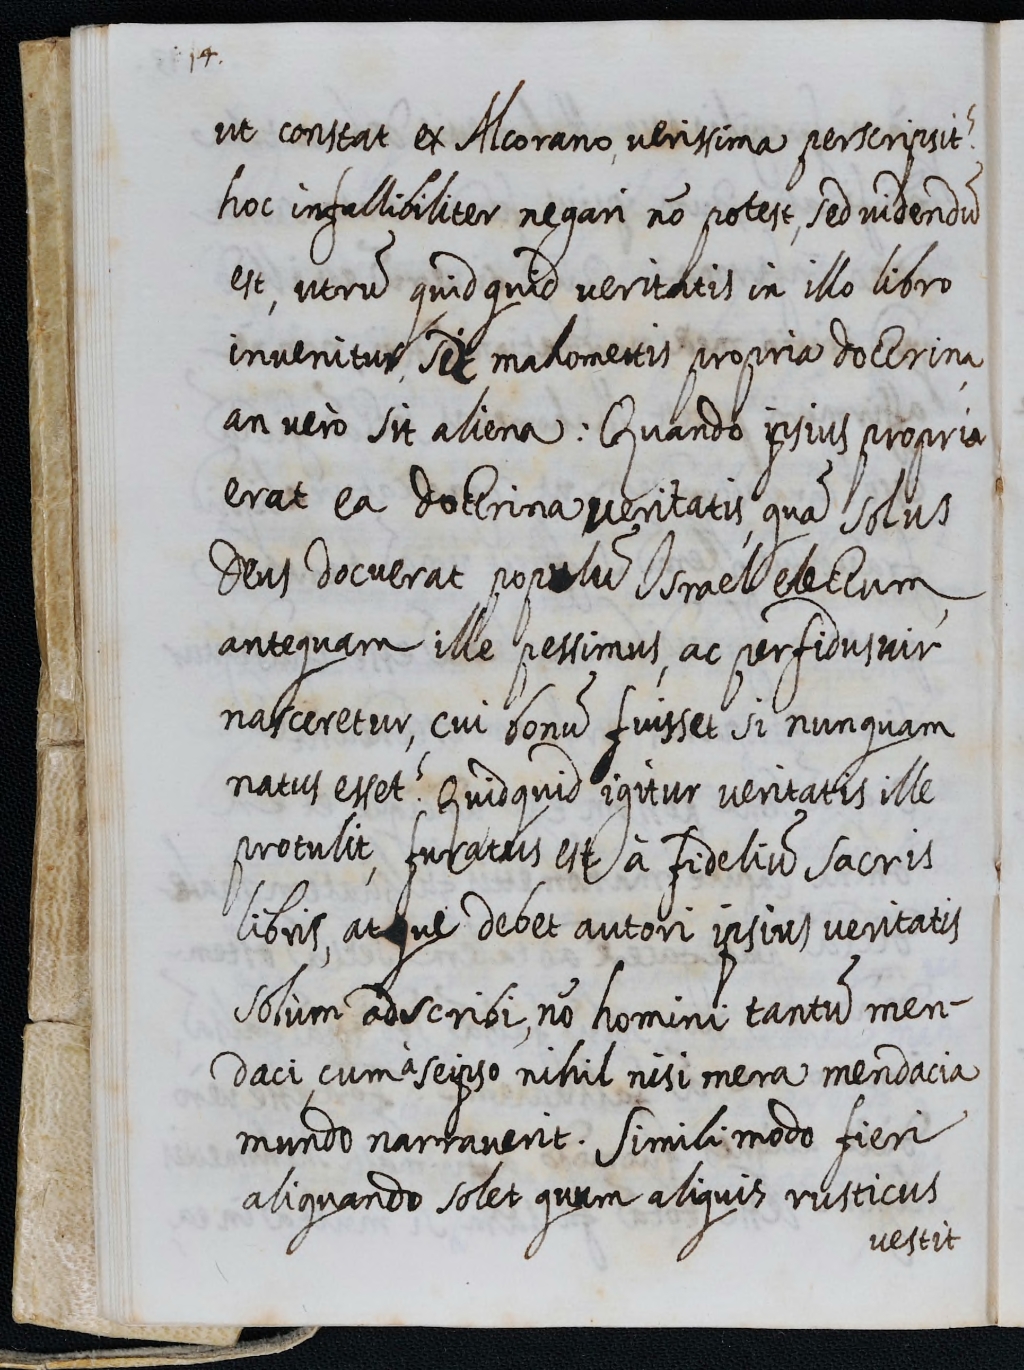 14.
ut constat ex Alcorano, verissima perscripsit?
hoc infallibiliter negari nō potest, sed uidendū
est, utrū quidquid veritatis in illo libro
inuenitur, sit mahomettis propria doctrina,
an verò sit aliena: Quando ipsius propria
erat ea doctrina veritatis, quā solus
Deus docuerat populū Israel electum,
antequam ille pessimus, ac perfidus uir
nasceretur, cui bonū fuisset si nunquam
natus esset? Quidquid igitur veritatis ille
protulit, furatus est à fideliū sacris
libris, atque debet autori ipsius veritatis
solum adscribi, nō homini tantū men-
daci, cum à seipso nihil nisi mera mendacia
mundo narraverit. Simili modo fieri
aliquando solet quum aliquis rusticus
vestit